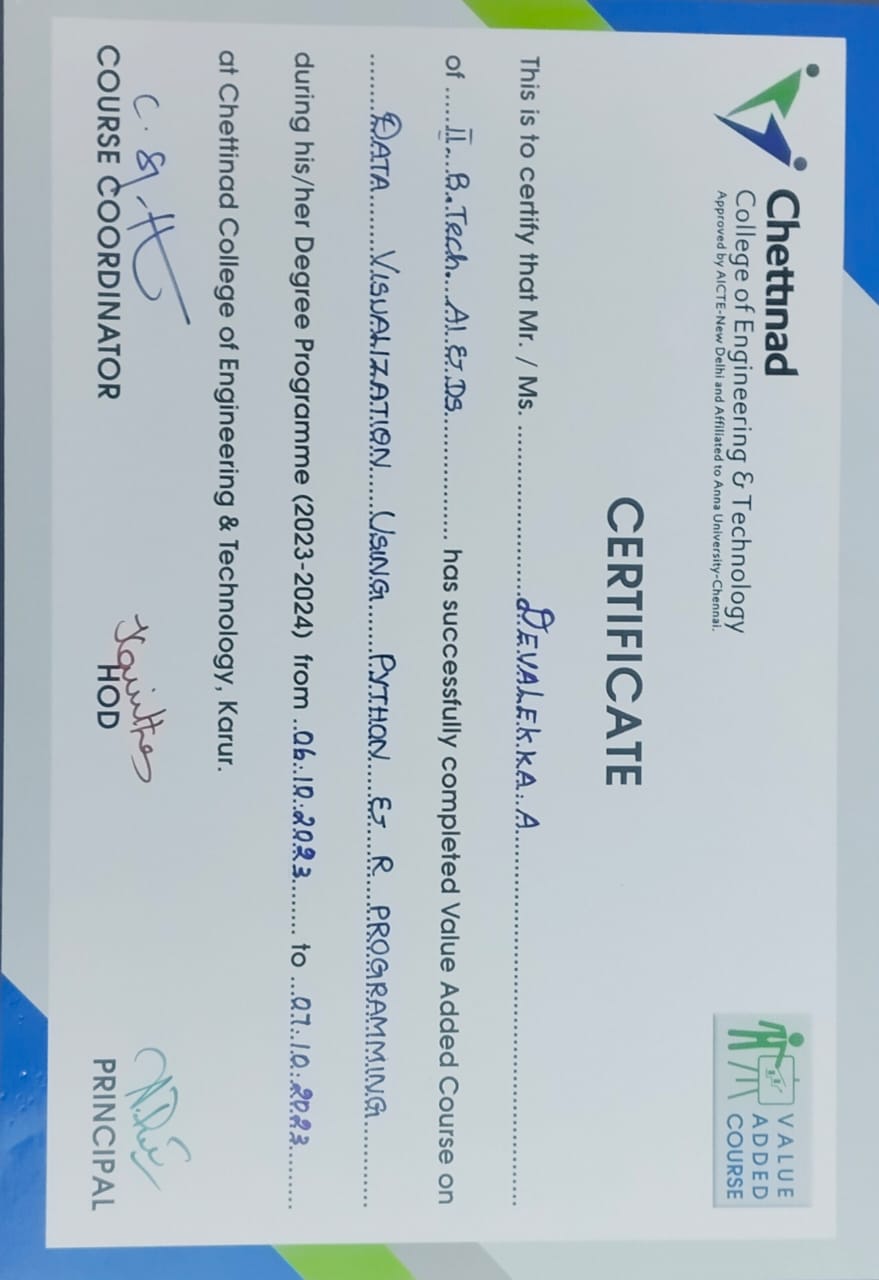 Chettinad
College of Engineering & Technology
Approved by AICTE-New Delhi and Affiliated to Anna University-Chennai.
VALUE
ADDED
COURSE
CERTIFICATE
This is to certify that Mr. / Ms. DEVALEKKA. A
of II. B.Tech. AI & DS has successfully completed Value Added Course on
DATA VISUALIZATION USING PYTHON & R PROGRAMMING
during his/her Degree Programme (2023-2024) from 06.10.2023 to 07.10.2023
at Chettinad College of Engineering & Technology, Karur.
COURSE COORDINATOR HOD PRINCIPAL